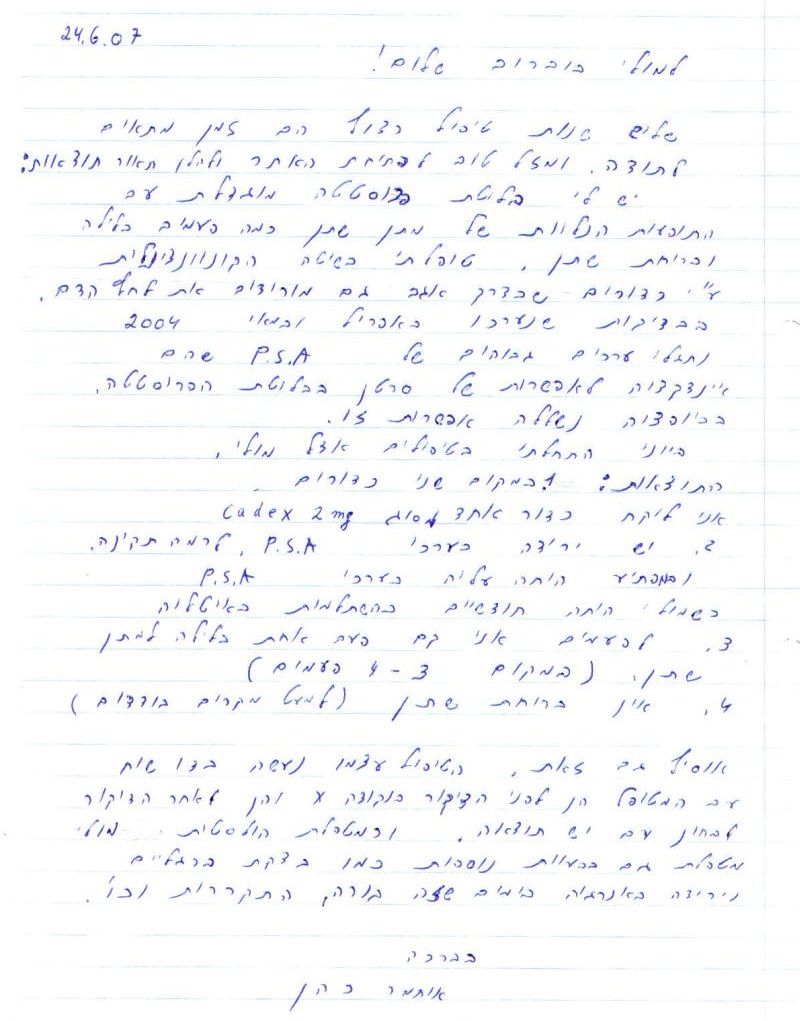 24.6.07
למולי בוברוב שלום!
שלוש שנות טיפול רצוף הם זמן מתאים
לתודה. ומזל טוב לפתיחת האתר ולהלן תאור תוצאות:
יש לי בלוטת פרוסטטה מוגדלת עם
התופעות הנלוות של מתן שתן כמה פעמים בלילה
ובריחת שתן. טופלתי בשיטה הקונוונציונלית
ע"י כדורים – שבדרך אגב גם מורידים את לחץ הדם.
בבדיקות שנערכו באפריל ובמאי 2004
נתגלו ערכים גבוהים של P.S.A שהם
אינדקציה לאפשרות של סרטן בבלוטת הפרוסטטה.
בביופציה נשללה אפשרות זו.
ביוני התחלתי בטיפולים אצל מולי.
התוצאות: 1. במקום שני כדורים
אני לוקח כדור אחד מסוג cadex 2 mg
2. יש ירידה בערכי P.S.A, לרמה תקינה.
ובמפתיע היתה עליה בערכי P.S.A
כשמולי היתה חודשיים בהשתלמות באיטליה
3. לפעמים אני קם פעם אחת בלילה למתן
שתן. (במקום 3 – 4 פעמים)
4. אין בריחת שתן (למעט מקרים בודדים)
אוסיף גם זאת. הטיפול עצמו נעשה בדו שיח
עם המטופל הן לפני הדיקור בנקודה x והן לאחר הדיקור
לבחון עם יש תוצאה. וכמטפלת הולסטית – מולי
מטפלת גם בבעיות נוספות כמו בצקת ברגליים
וירידה באנרגיה בימים שזה קורה, התקררות וכו'.
בברכה
איתמר כהן